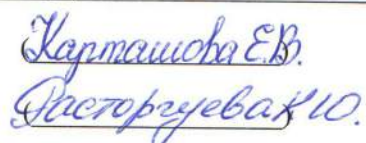 Карташова Е.В.
Расторгуева К.Ю.